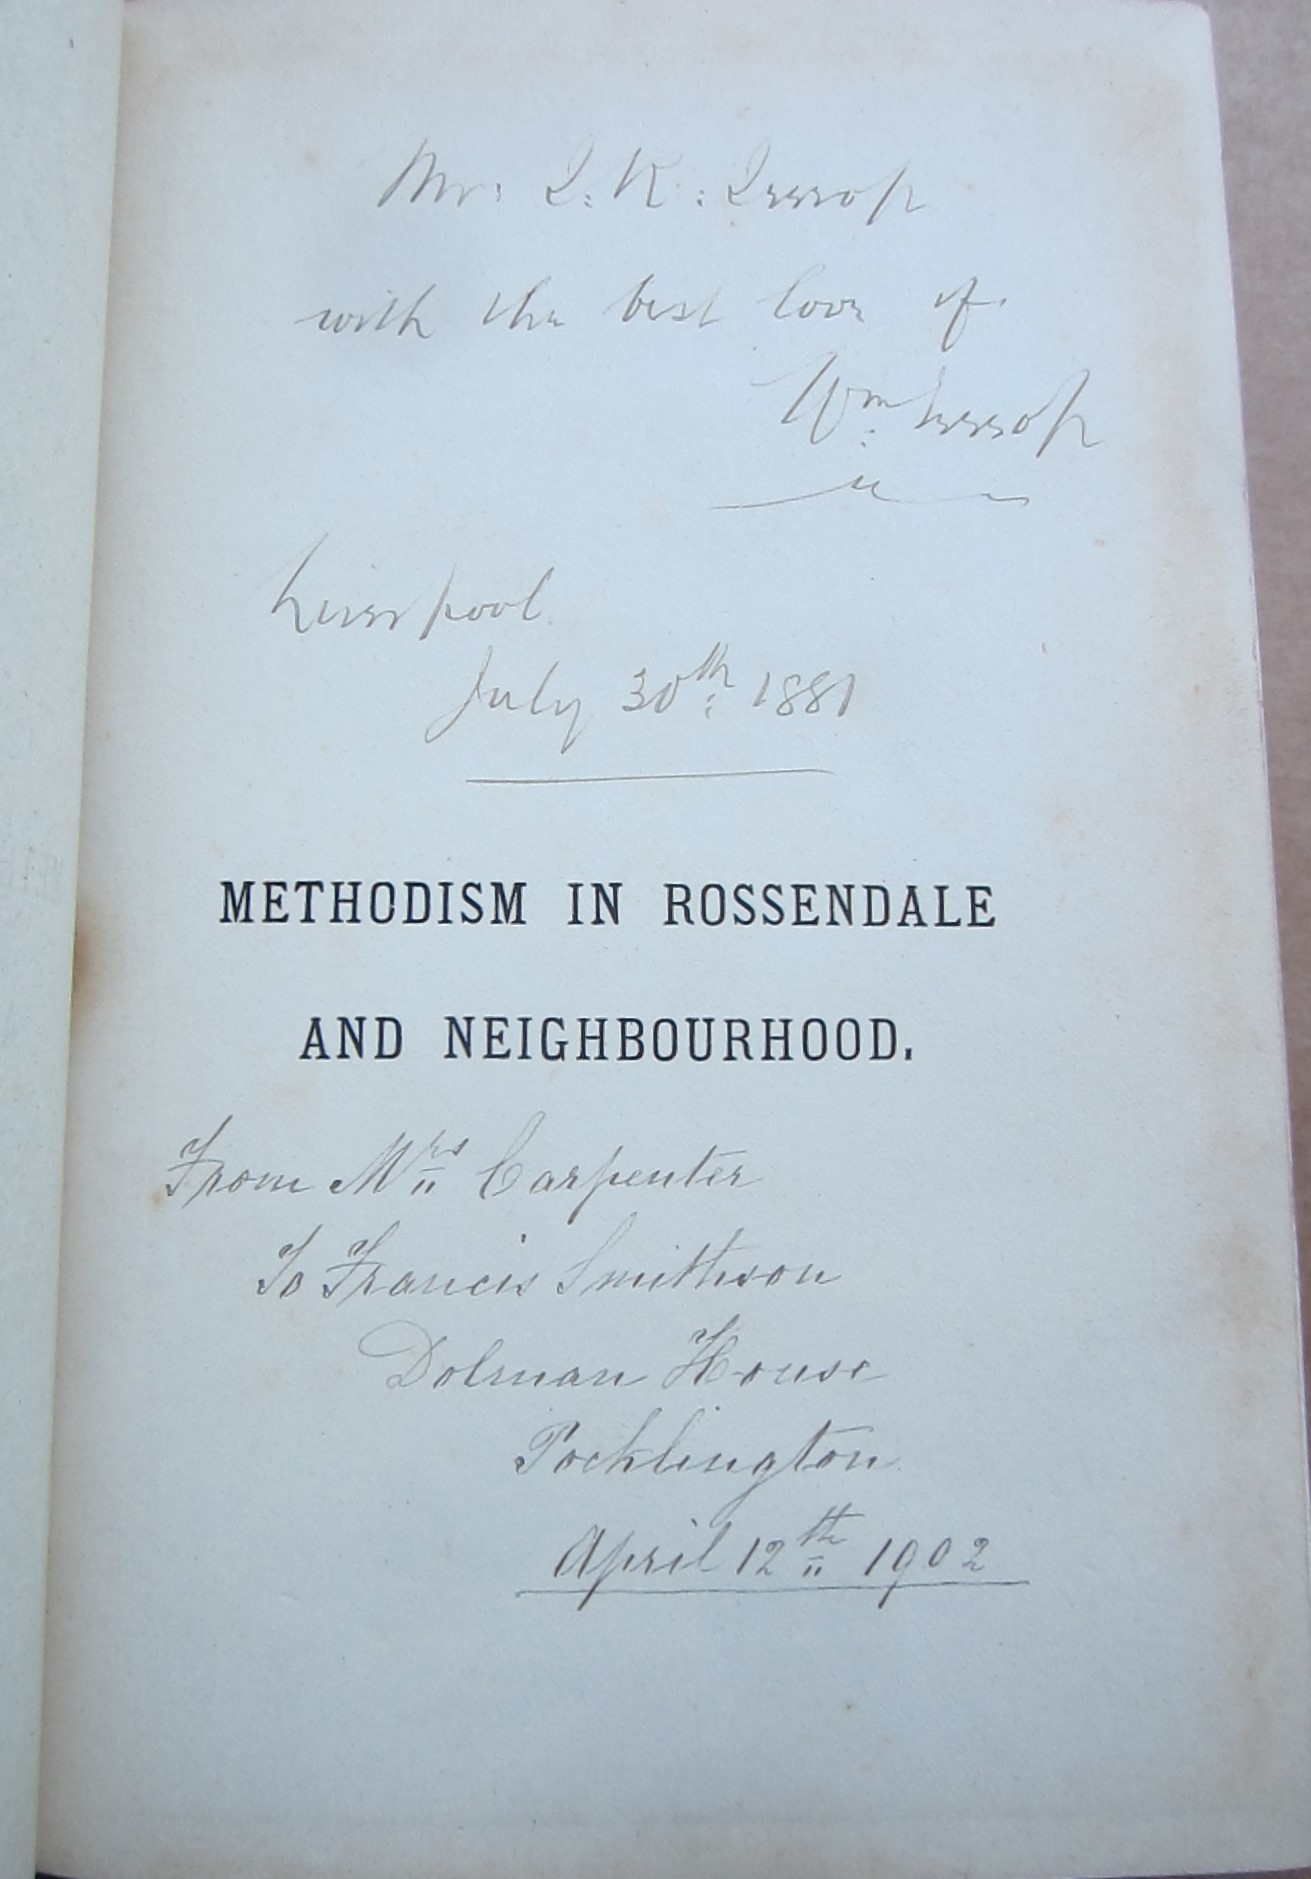 Mr: J. K: Jessop
with the best love of
Wm: Jessop
Liverpool
July 30th: 1881
METHODISM IN ROSSENDALE
AND NEIGHBOURHOOD.
From Mrs Carpenter
To Francis Smithson
Dolman House
Pocklington
April 12th 1902